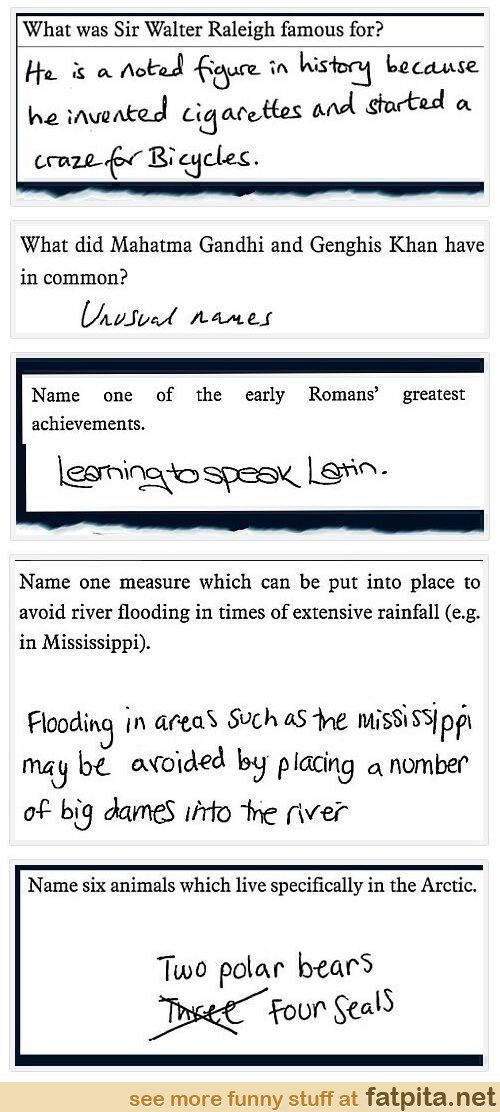 What was Sir Walter Raleigh famous for?
He is a noted figure in history because
he invented cigarettes and started a
craze for Bicycles.
What did Mahatma Gandhi and Genghis Khan have
in common?
Unusual names
Name one of the early Romans' greatest
achievements.
Learning to speak Latin.
Name one measure which can be put into place to
avoid river flooding in times of extensive rainfall (e.g.
in Mississippi).
Flooding in areas such as the Mississippi
may be avoided by placing a number
of big dames into the river
Name six animals which live specifically in the Arctic.
Two polar bears
Three Four Seals
see more funny stuff at fatpita.net